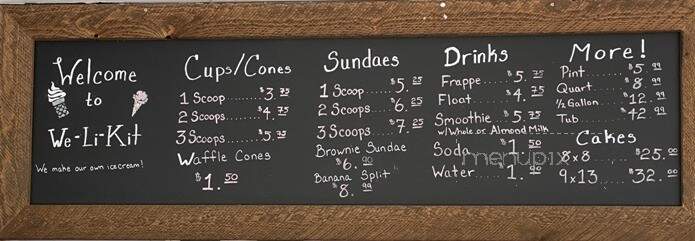 Welcome
to
We-Li-Kit
We make our own ice cream!
Cups/Cones
1 Scoop........$3.75
2 Scoops......$4.75
3 Scoops.....$5.75
Waffle Cones
$1.50
Sundaes
1 Scoop......$5.25
2 Scoops...$6.25
3 Scoops...$7.25
Brownie Sundae
$6.90
Banana Split
$8.99
Drinks
Frappe.....$5.75
Float......$4.75
Smoothie...$5.75
w/Whole or Almond Milk
Soda......$1.50
Water.....1.
More!
Pint......$5.99
Quart.....$8.99
½ Gallon...$12.99
Tub.......$42.99
Cakes
8x8......$25.00
9x13.....$32.00
menupix